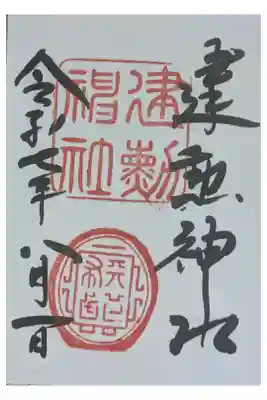 建勲神社
建勲
神社
令和七年
八月一日